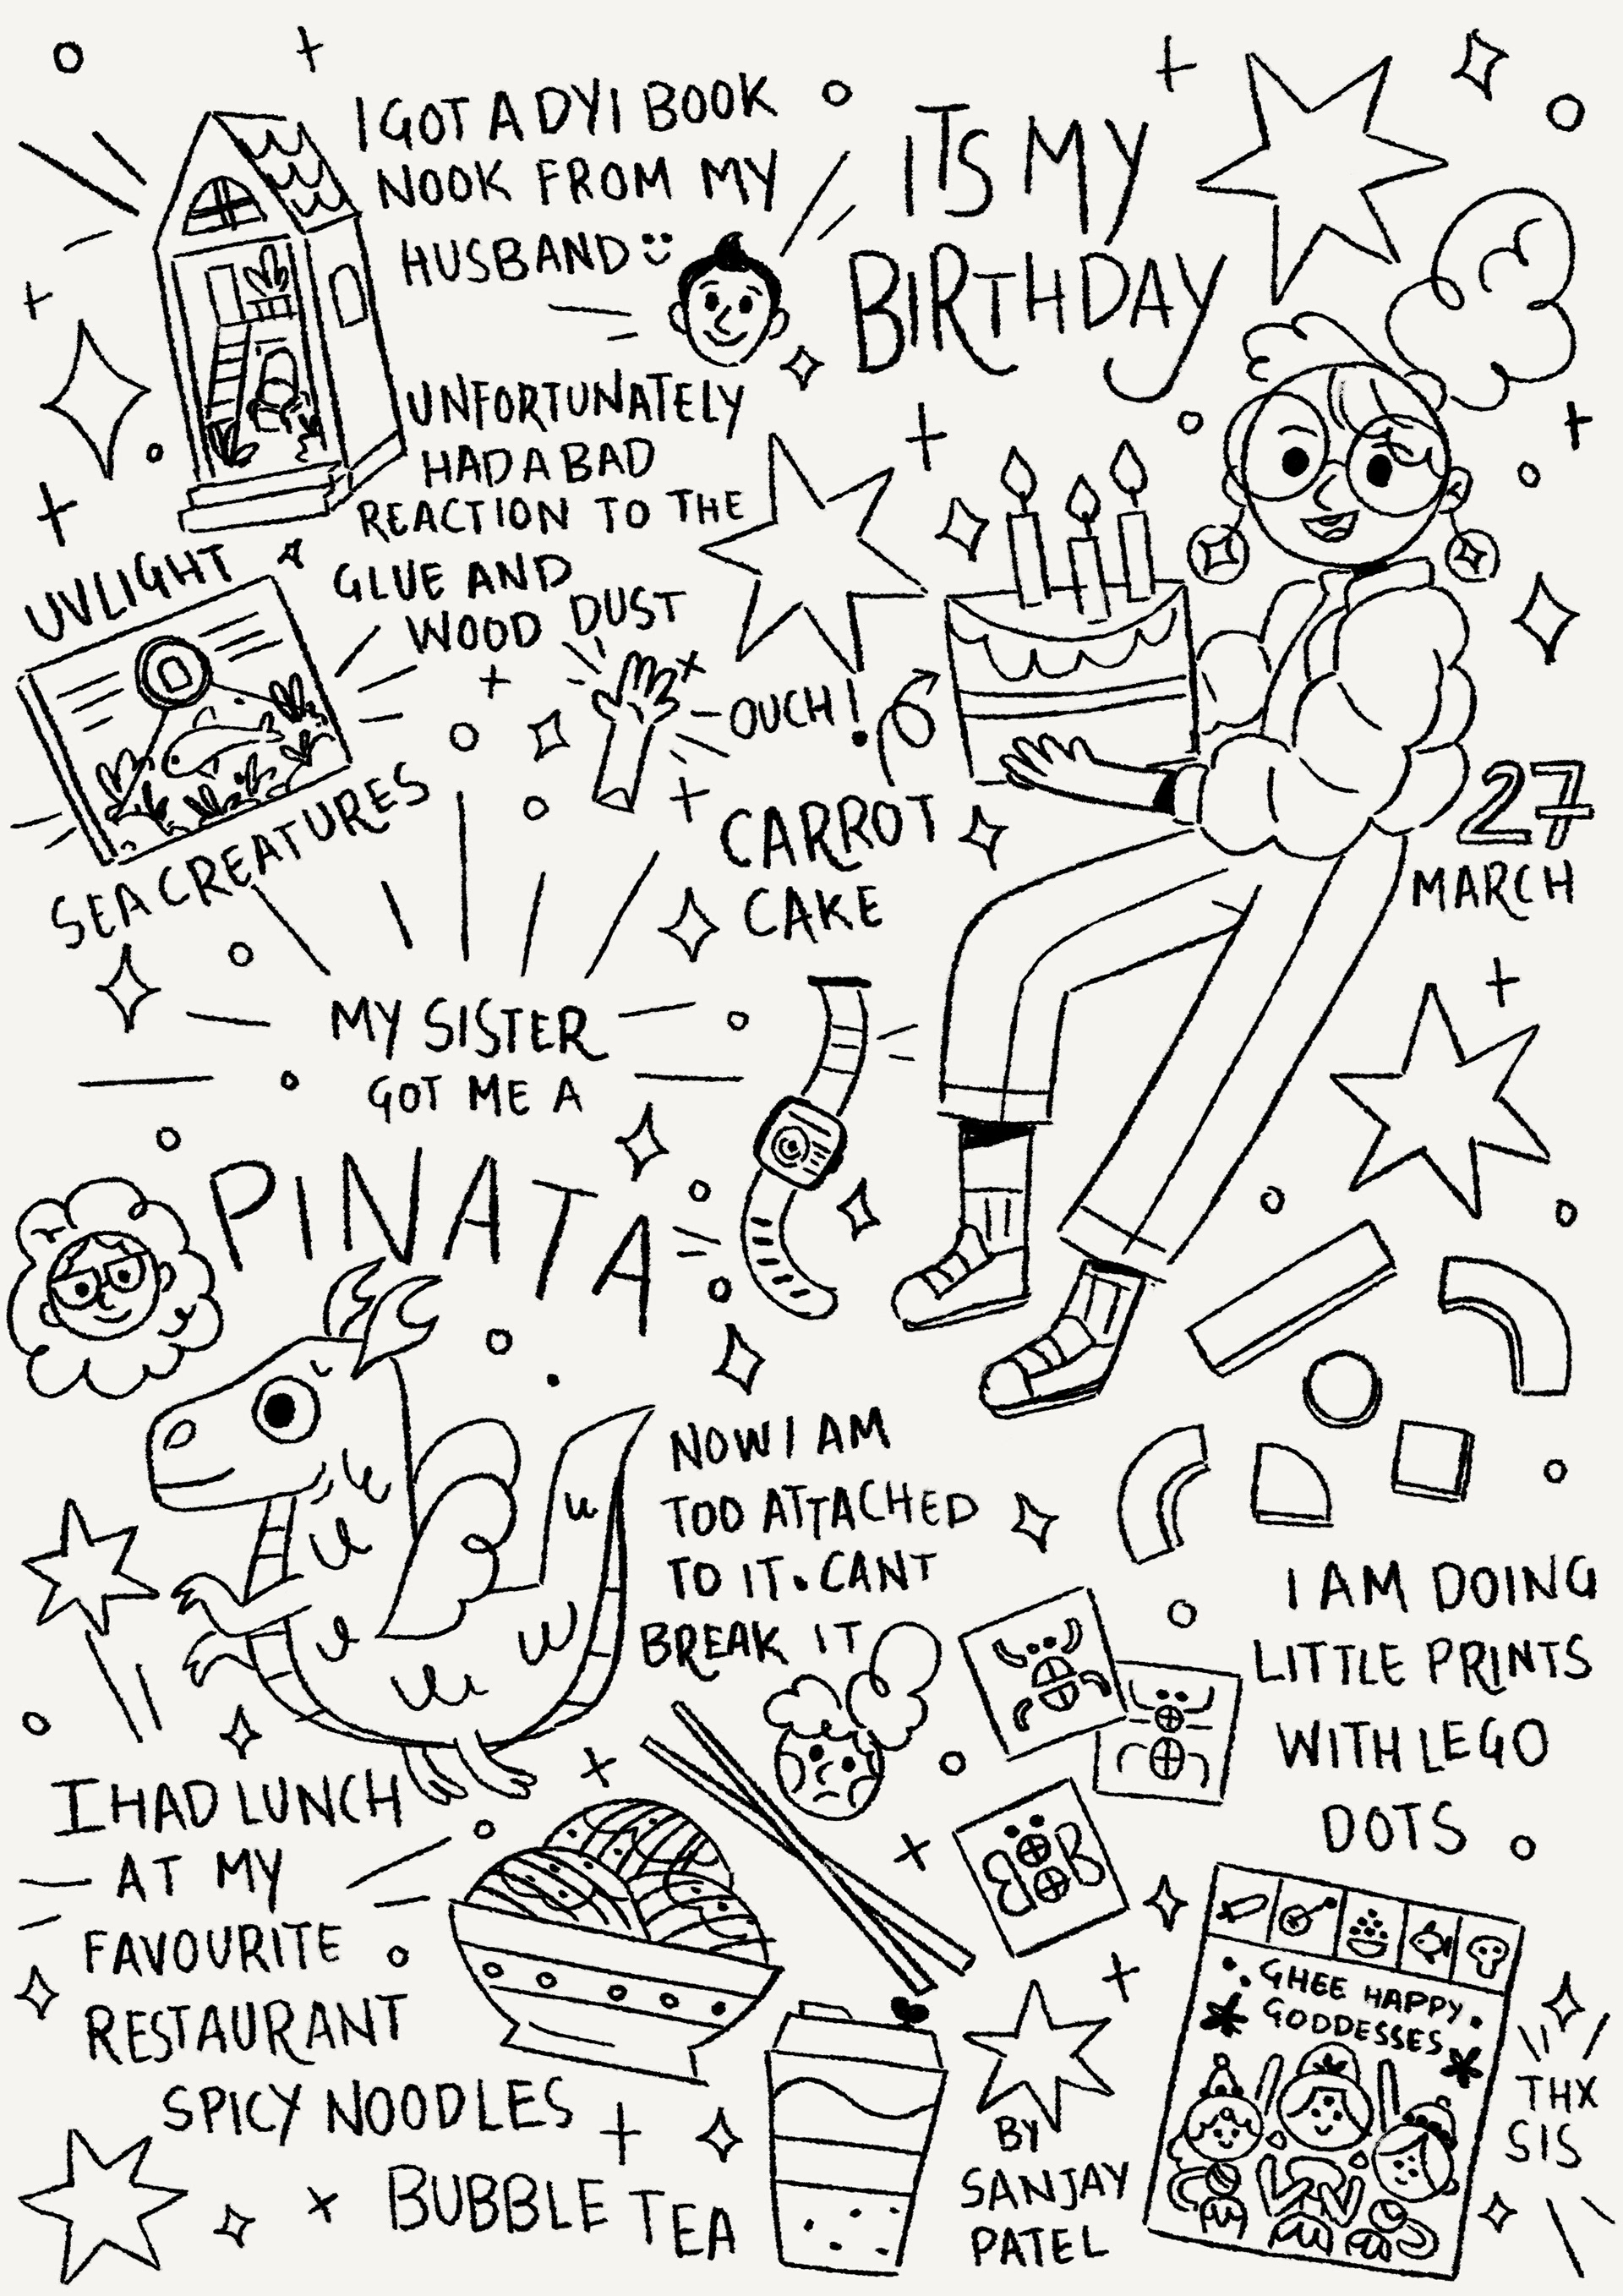 I GOT A DYI BOOK
NOOK FROM MY
HUSBAND
ITS MY
BIRTHDAY
UNFORTUNATELY
HAD A BAD
REACTION TO THE
GLUE AND
WOOD DUST
OUCH!
UVLIGHT
SEA CREATURES
CARROT
CAKE
27
MARCH
MY SISTER
GOT ME A
PINATA
NOW I AM
TOO ATTACHED
TO IT. CANT
BREAK IT
I AM DOING
LITTLE PRINTS
WITH LEGO
DOTS
I HAD LUNCH
AT MY
FAVOURITE
RESTAURANT
SPICY NOODLES
BUBBLE TEA
GHEE HAPPY
GODDESSES
BY
SANJAY
PATEL
THX
SIS